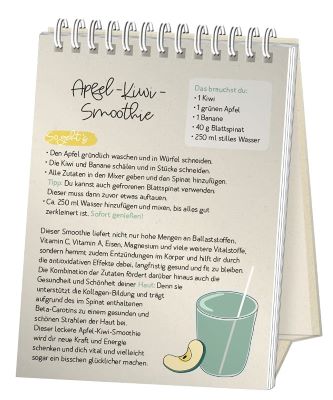 Apfel-Kiwi-
Smoothie
Das brauchst du:
• 1 Kiwi
• 1 grünen Apfel
• 1 Banane
• 40 g Blattspinat
• 250 ml stilles Wasser
So geht's
• Den Apfel gründlich waschen und in Würfel schneiden.
• Die Kiwi und Banane schälen und in Stücke schneiden.
• Alle Zutaten in den Mixer geben und den Spinat hinzufügen.
Tipp: Du kannst auch gefrorenen Blattspinat verwenden.
Dieser muss dann zuvor etwas auftauen.
• Ca. 250 ml Wasser hinzufügen und mixen, bis alles gut
zerkleinert ist. Sofort genießen!
Dieser Smoothie liefert nicht nur hohe Mengen an Ballaststoffen,
Vitamin C, Vitamin A, Eisen, Magnesium und viele weitere Vitalstoffe,
sondern hemmt zudem Entzündungen im Körper und hilft dir durch
die antioxidativen Effekte dabei, langfristig gesund und fit zu bleiben.
Die Kombination der Zutaten fördert darüber hinaus auch die
Gesundheit und Schönheit deiner Haut: Denn sie
unterstützt die Kollagen-Bildung und trägt
aufgrund des im Spinat enthaltenen
Beta-Carotins zu einem gesunden und
schönen Strahlen der Haut bei.
Dieser leckere Apfel-Kiwi-Smoothie
wird dir neue Kraft und Energie
schenken und dich vital und vielleicht
sogar ein bisschen glücklicher machen.